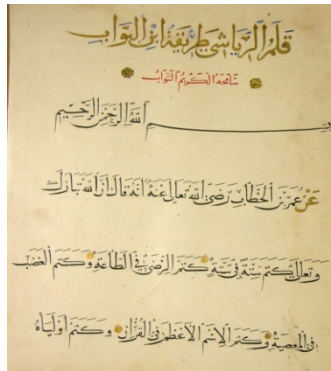 قلم الرياشي طريقة ابن البواب
سامحه الكريم التواب
بسم الله الرحمن الرحيم
عن عمر بن الخطاب رضي الله تعالى عنه انه قال ان الله تبارك
وتعالى كتم ستة في ستة كتم الرضى في الطاعة وكتم الغضب
في المعصية وكتم الاسم الاعظم في القران وكتم اولياه